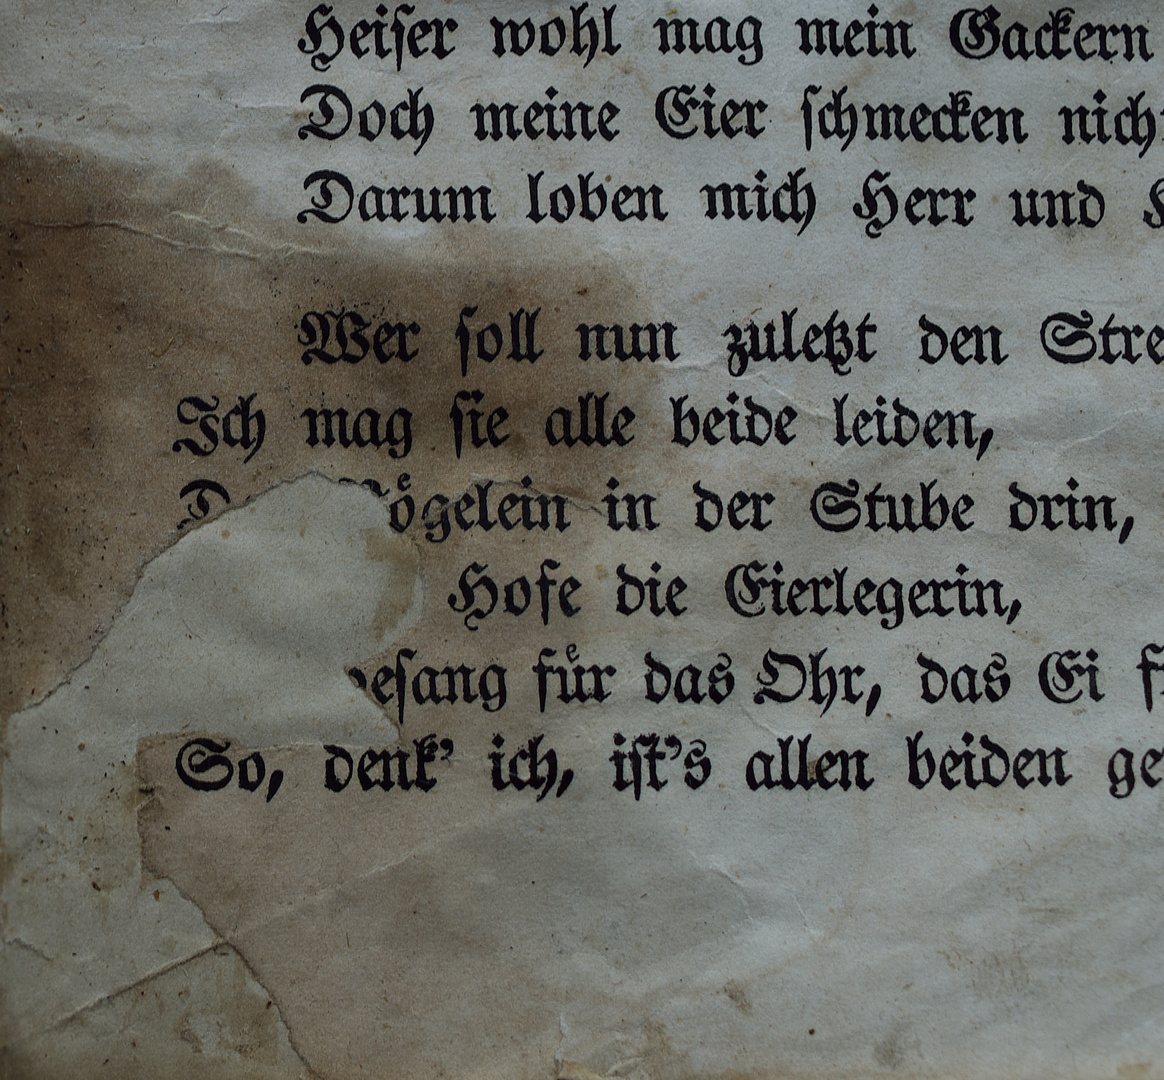 Heiser wohl mag mein Gackern
Doch meine Eier schmecken
Darum loben mich Herr und
Wer soll nun zuletzt den
Ich mag sie alle beide leiden,
in der Stube drin,
Hofe die Eierlegerin,
für das Ohr, das Ei
So, denk' ich, ist's allen beiden